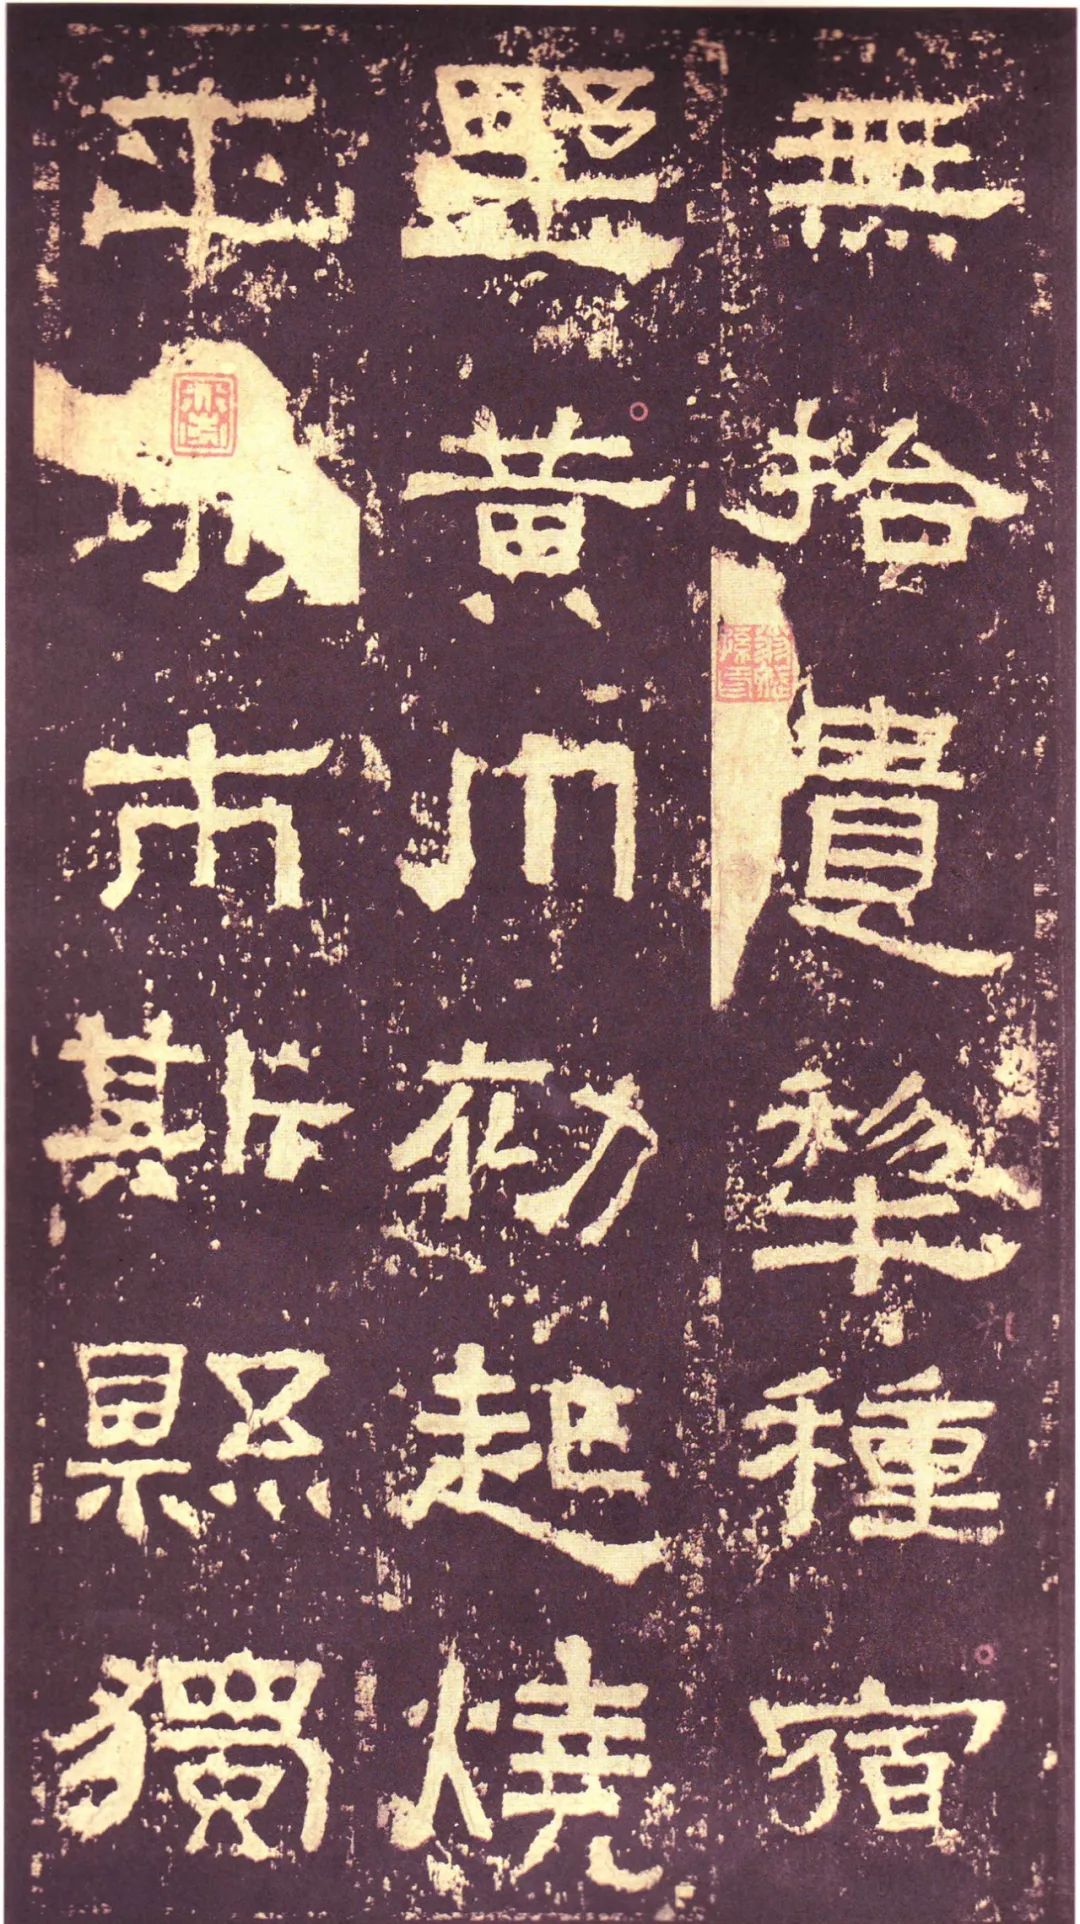 無拾遺犁種宿
野黃巾初起燒
平市斯縣獨